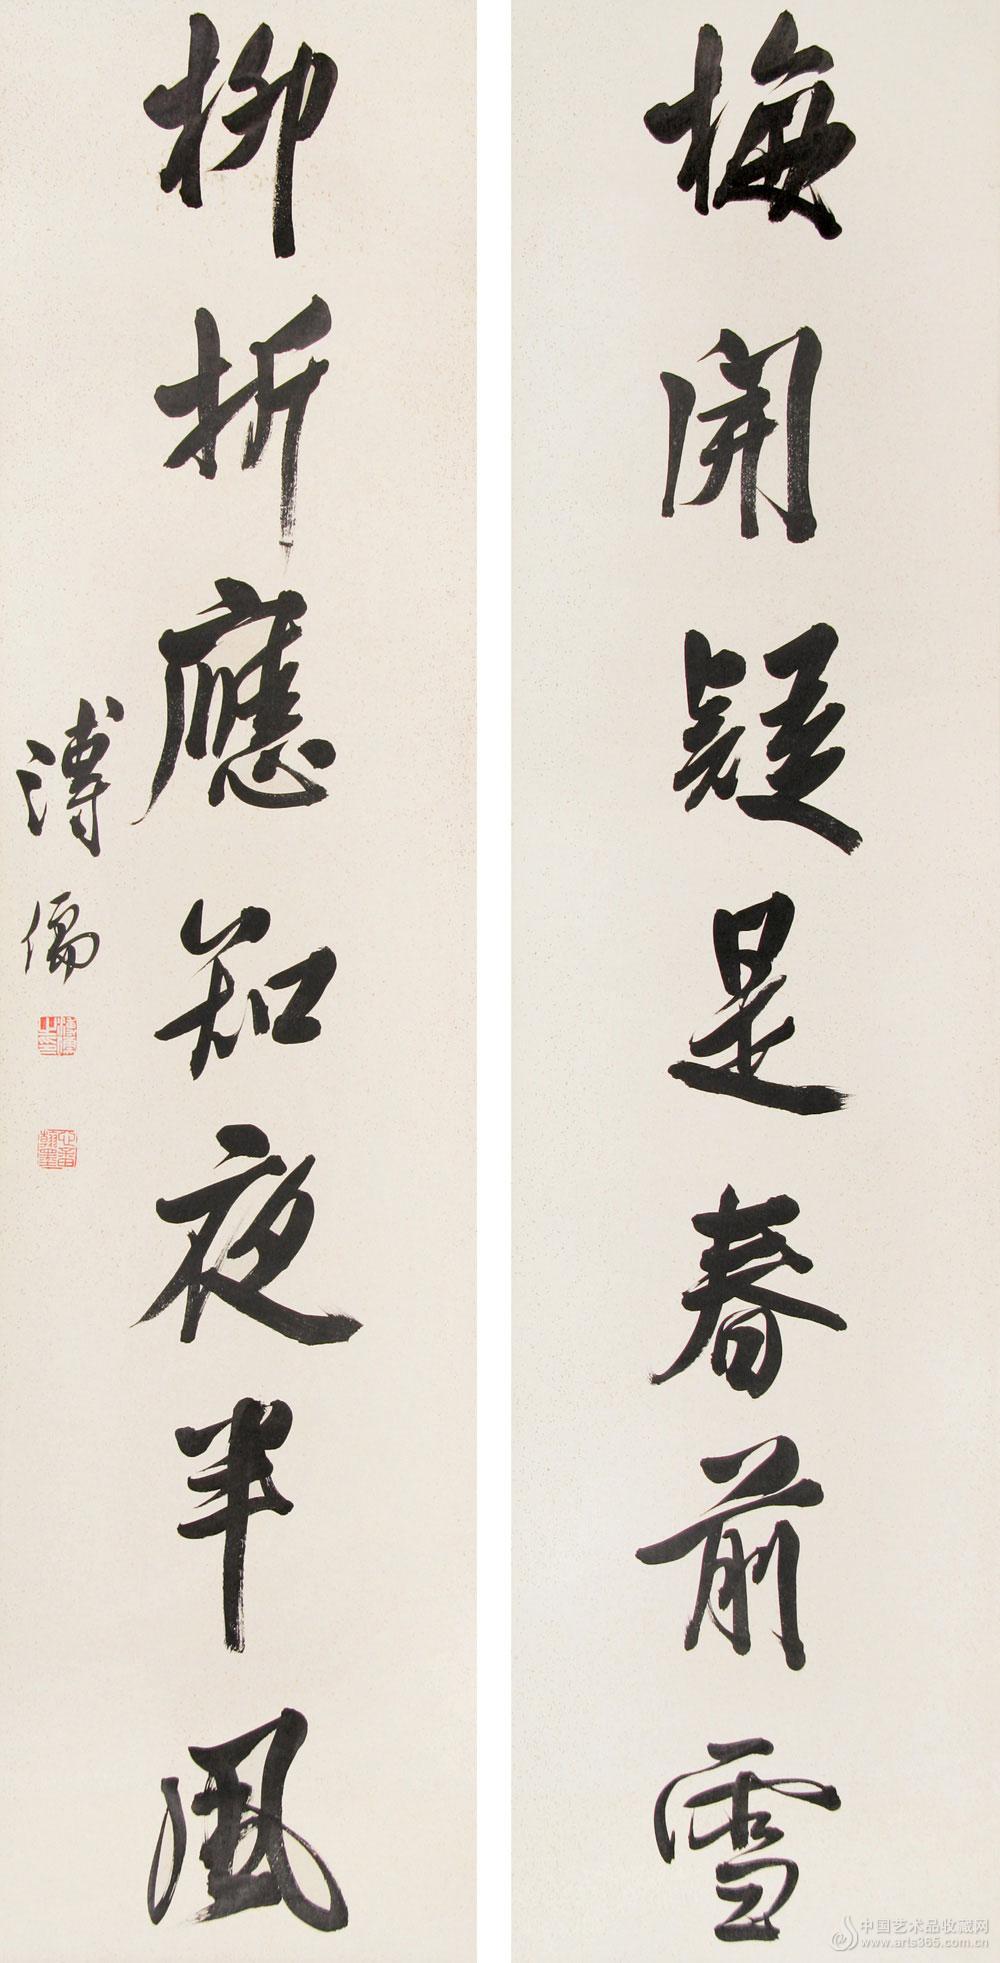 梅開疑是春前雪
柳折應知夜半風
溥儒
中国艺术品收藏网
www.arts365.com.cn